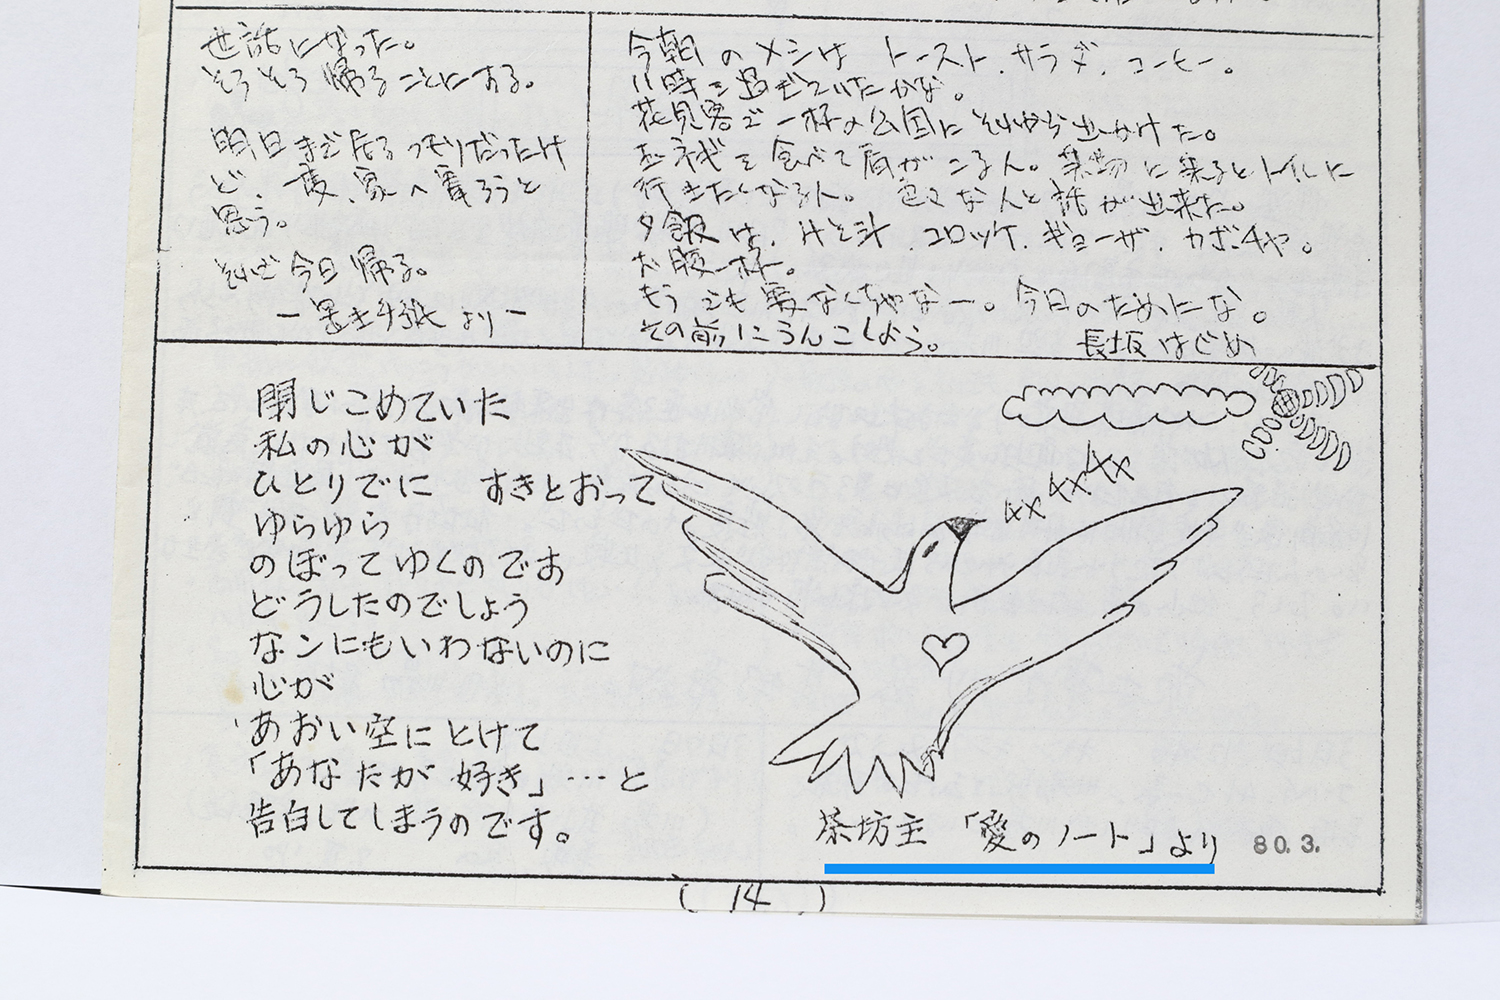 世話になった。
そろそろ帰ることにする。
明日まで居るつもりだったけ
ど、一度、家へ戻ろうと
思う。
それで今日帰る。
手紙より－
今朝のメシは トースト、サラダ、コーヒー。
11時を過ぎていたかな。
花見客で一杯の公園にそれから出かけた。
を食べて肩がこるん。 に来るとトイレに
行きたくなるん。 色々な人と話が出来た。
夕飯は、みそ汁、コロッケ、ギョーザ、カボチャ。
お腹一杯。
もう寝なくちゃなー。今日のためにな。
その前にうんこしよう。
長坂はじめ
閉じこめていた
私の心が
ひとりでに すきとおって
ゆらゆら
のぼってゆくのです
どうしたのでしょう
なンにもいわないのに
心が
あおい空にとけて
「あなたが好き」…と
告白してしまうのです。
茶坊主「愛のノート」より 80.3.
(14)